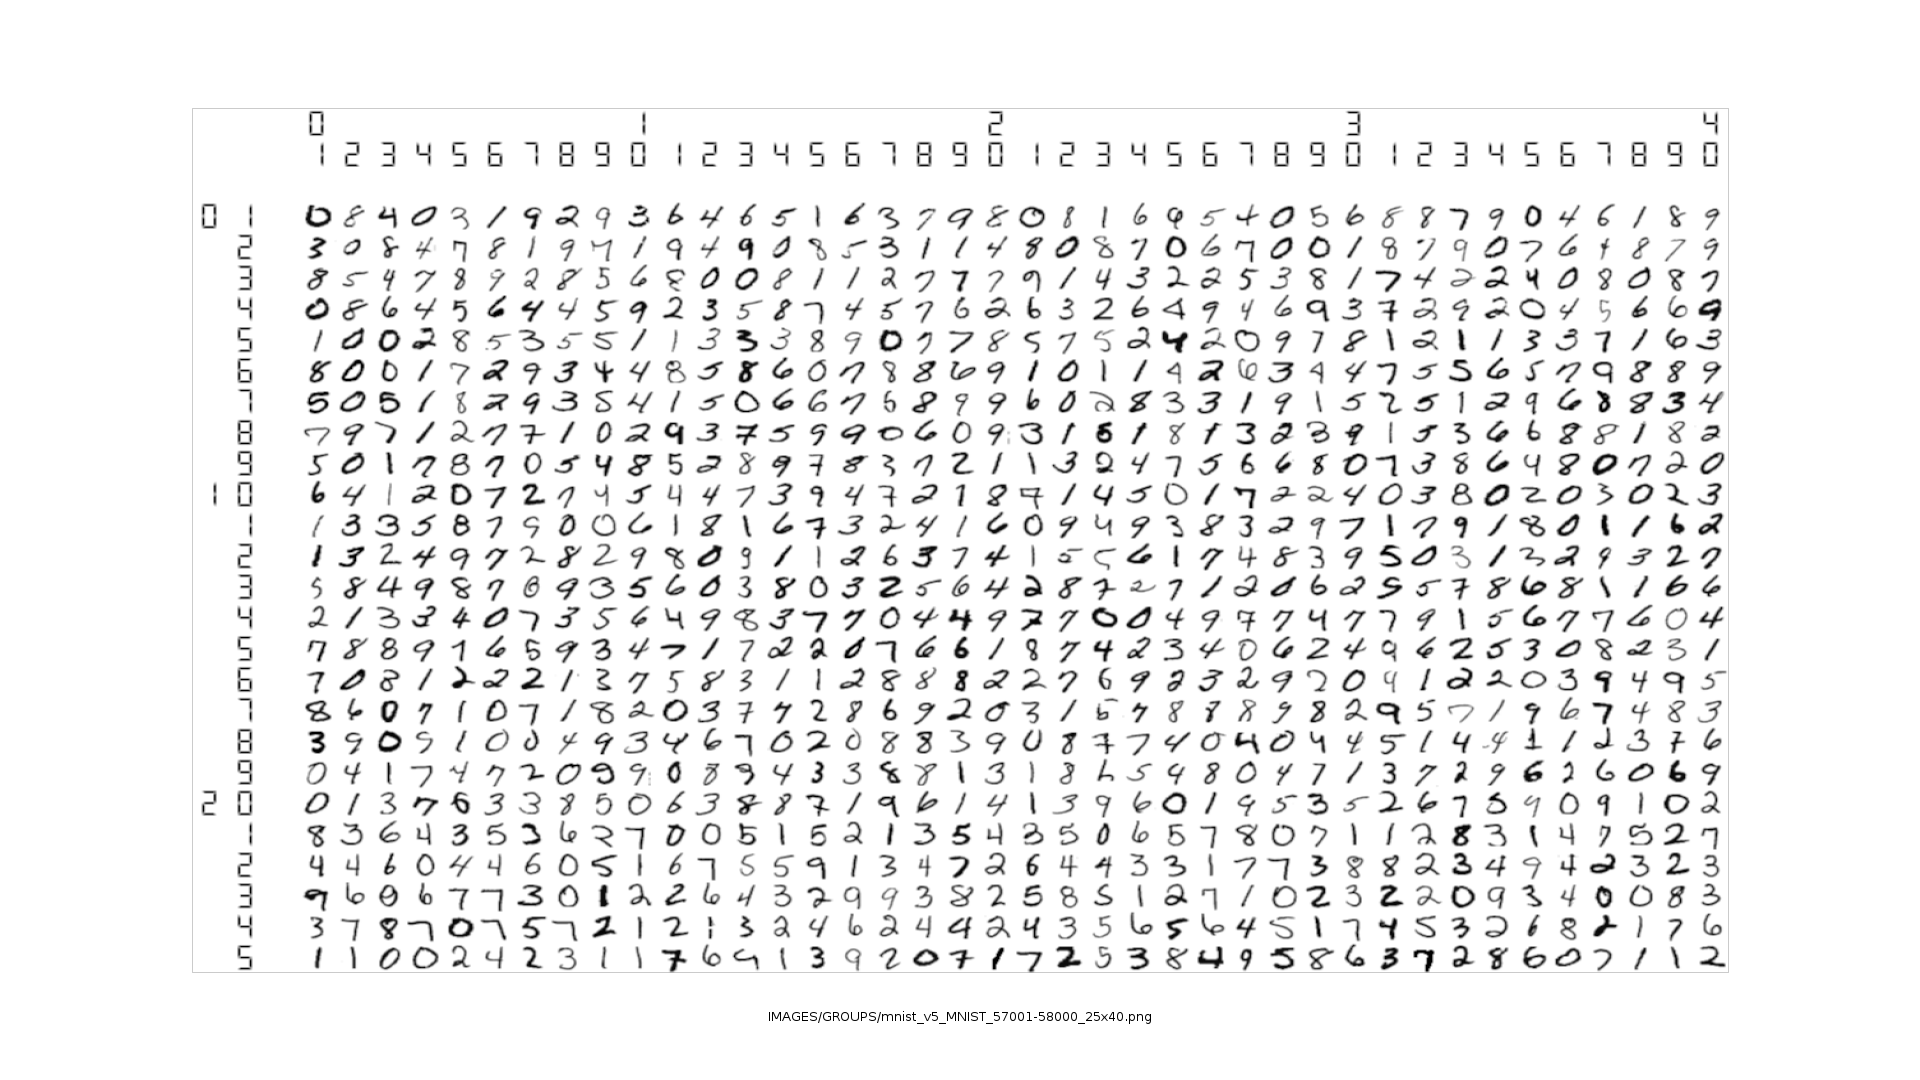 0 1 2 3 4
1 2 3 4 5 6 7 8 9 0 1 2 3 4 5 6 7 8 9 0 1 2 3 4 5 6 7 8 9 0 1 2 3 4 5 6 7 8 9 0
0 1 0 8 4 0 3 1 9 2 9 3 6 4 6 5 1 6 3 7 9 8 0 8 1 6 9 5 4 0 5 6 8 8 7 9 0 4 6 1 8 9
2 3 0 8 4 7 8 1 9 7 1 9 4 9 0 8 5 3 1 1 4 8 0 8 7 0 6 7 0 0 1 8 7 9 0 7 6 4 8 7 9
3 8 5 4 7 8 9 2 8 5 6 8 0 0 8 1 1 2 7 7 7 9 1 4 3 2 2 5 3 8 1 7 4 2 2 4 0 8 0 8 7
4 0 8 6 4 5 6 4 4 5 9 2 3 5 8 7 4 5 7 6 2 6 3 2 6 4 9 4 6 9 3 7 2 9 2 0 4 5 6 6 9
5 1 0 0 2 8 5 3 5 5 1 1 3 3 3 8 9 0 7 7 8 5 7 5 2 4 2 0 9 7 8 1 2 1 1 3 3 7 1 6 3
6 8 0 0 1 7 2 9 3 4 4 8 5 8 6 0 7 8 8 6 9 1 0 1 1 4 2 6 3 4 4 7 5 5 6 5 7 9 8 8 9
7 5 0 5 1 8 2 9 3 5 4 1 5 0 6 6 7 5 8 9 9 6 0 2 8 3 3 1 9 1 5 2 5 1 2 9 6 8 8 3 4
8 7 9 7 1 2 7 7 1 0 2 9 3 7 5 9 9 0 6 0 9 3 1 5 1 8 1 3 2 3 9 1 5 3 6 6 8 8 1 8 2
9 5 0 1 7 8 7 0 5 4 8 5 2 8 9 7 8 3 7 2 1 1 3 2 4 7 5 6 6 8 0 7 3 8 6 4 8 0 7 2 0
1 0 6 4 1 2 0 7 2 7 4 5 4 4 7 3 9 4 7 2 1 8 7 1 4 5 0 1 7 2 2 4 0 3 8 0 2 0 3 0 2 3
1 1 3 3 5 8 7 9 0 0 6 1 8 1 6 7 3 2 4 1 6 0 9 4 9 3 8 3 2 9 7 1 7 9 1 8 0 1 1 6 2
2 1 3 2 4 9 7 2 8 2 9 8 0 9 1 1 2 6 3 7 4 1 5 5 6 1 7 4 8 3 9 5 0 3 1 3 2 9 3 2 7
3 5 8 4 9 8 7 0 9 3 5 6 0 3 8 0 3 2 5 6 4 2 8 7 2 7 1 2 0 6 2 5 5 7 8 6 8 1 1 6 6
4 2 1 3 3 4 0 7 3 5 6 4 9 8 3 7 7 0 4 4 9 7 7 0 0 4 9 7 7 4 7 7 9 1 5 6 7 7 6 0 4
5 7 8 8 9 1 6 5 9 3 4 7 1 7 2 2 0 7 6 6 1 8 7 4 2 3 4 0 6 2 4 9 6 2 5 3 0 8 2 3 1
6 7 0 8 1 2 2 2 1 3 7 5 8 3 1 1 2 8 8 8 2 2 7 6 9 2 3 2 9 2 0 9 1 2 2 0 3 9 4 9 5
7 8 6 0 7 1 0 7 1 8 2 0 3 7 7 2 8 6 9 2 0 3 1 5 7 8 8 8 9 8 2 9 5 7 1 9 6 7 4 8 3
8 3 9 0 9 1 0 0 4 9 3 4 6 7 0 2 0 8 8 3 9 0 8 7 7 4 0 4 0 4 4 5 1 4 4 1 1 2 3 7 6
9 0 4 1 7 4 7 2 0 9 9 0 8 9 4 3 3 8 8 1 3 1 8 6 5 9 8 0 4 7 1 3 7 2 9 6 2 6 0 6 9
2 0 0 1 3 7 6 3 3 8 5 0 6 3 8 8 7 1 9 6 1 4 1 3 9 6 0 1 9 5 3 5 2 6 7 5 9 0 9 1 0 2
1 8 3 6 4 3 5 3 6 2 7 0 0 5 1 5 2 1 3 5 4 3 5 0 6 5 7 8 0 7 1 1 2 8 3 1 4 7 5 2 7
2 4 4 6 0 4 4 6 0 5 1 6 7 5 5 9 1 3 4 7 2 6 4 4 3 3 1 7 7 3 8 8 2 3 4 9 4 2 3 2 3
3 9 6 0 6 7 7 3 0 1 2 2 6 4 3 2 9 9 3 8 2 5 8 5 1 2 7 1 0 2 3 2 2 0 9 3 4 0 0 8 3
4 3 7 8 7 0 7 5 7 2 1 2 1 3 2 4 6 2 4 4 2 4 3 5 6 5 6 4 5 1 7 4 5 3 2 6 8 2 1 7 6
5 1 1 0 0 2 4 2 3 1 1 7 6 9 1 3 9 2 0 7 1 7 2 5 3 8 4 9 5 8 6 3 7 2 8 6 0 7 1 1 2
IMAGES/GROUPS/mnist_v5_MNIST_57001-58000_25x40.png